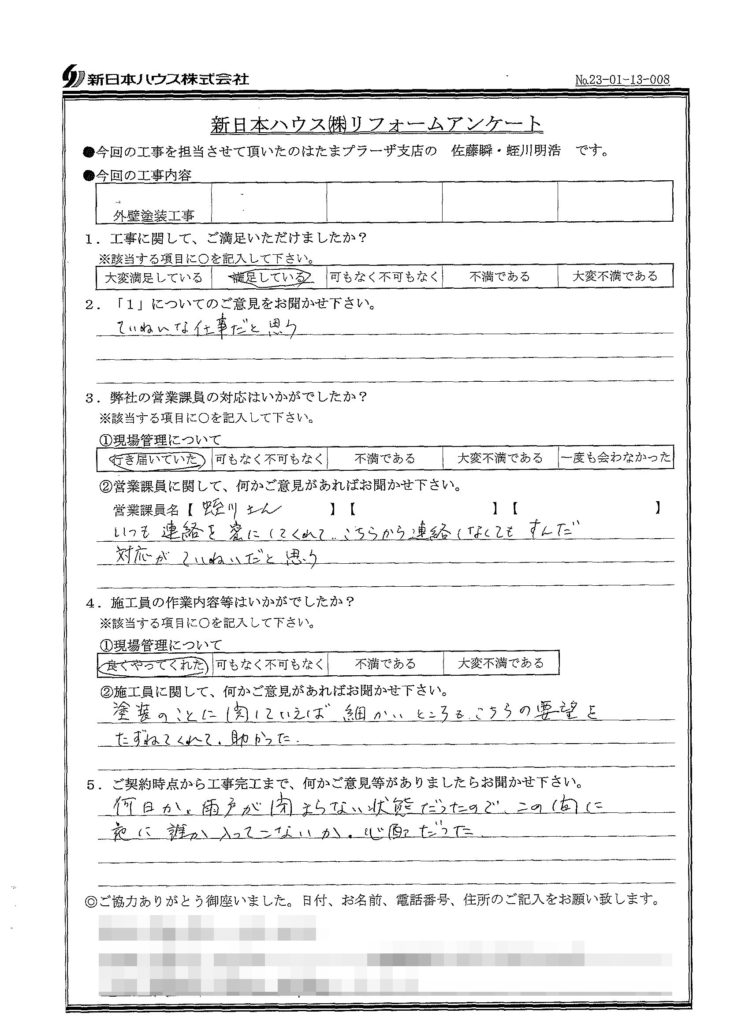 新日本ハウス株式会社
No.23-01-13-008
新日本ハウス㈱リフォームアンケート
●今回の工事を担当させて頂いたのはたまプラーザ支店の 佐藤瞬・蛭川明浩 です。
●今回の工事内容
外壁塗装工事
1．工事に関して、ご満足いただけましたか？
※該当する項目に○を記入して下さい。
大変満足している 満足している 可もなく不可もなく 不満である 大変不満である
2．「1」についてのご意見をお聞かせ下さい。
ていねいな仕事だと思う
3．弊社の営業課員の対応はいかがでしたか？
※該当する項目に○を記入して下さい。
①現場管理について
行き届いていた 可もなく不可もなく 不満である 大変不満である 一度も会わなかった
②営業課員に関して、何かご意見があればお聞かせ下さい。
営業課員名【 蛭川さん 】【 】【 】
いつも連絡を密にしてくれて、こちらから連絡しなくてもすんだ
対応がていねいだと思う
4．施工員の作業内容等はいかがでしたか？
※該当する項目に○を記入して下さい。
①現場管理について
良くやってくれた 可もなく不可もなく 不満である 大変不満である
②施工員に関して、何かご意見があればお聞かせ下さい。
塗装のことに関していえば細かいところもこちらの要望を
たずねてくれて、助かった.
5．ご契約時点から工事完工まで、何かご意見等がありましたらお聞かせ下さい。
何日か、雨戸が閉まらない状態だったので、この間に
夜に誰か入ってこないか、心配だった
◎ご協力ありがとう御座いました。日付、お名前、電話番号、住所のご記入をお願い致します。